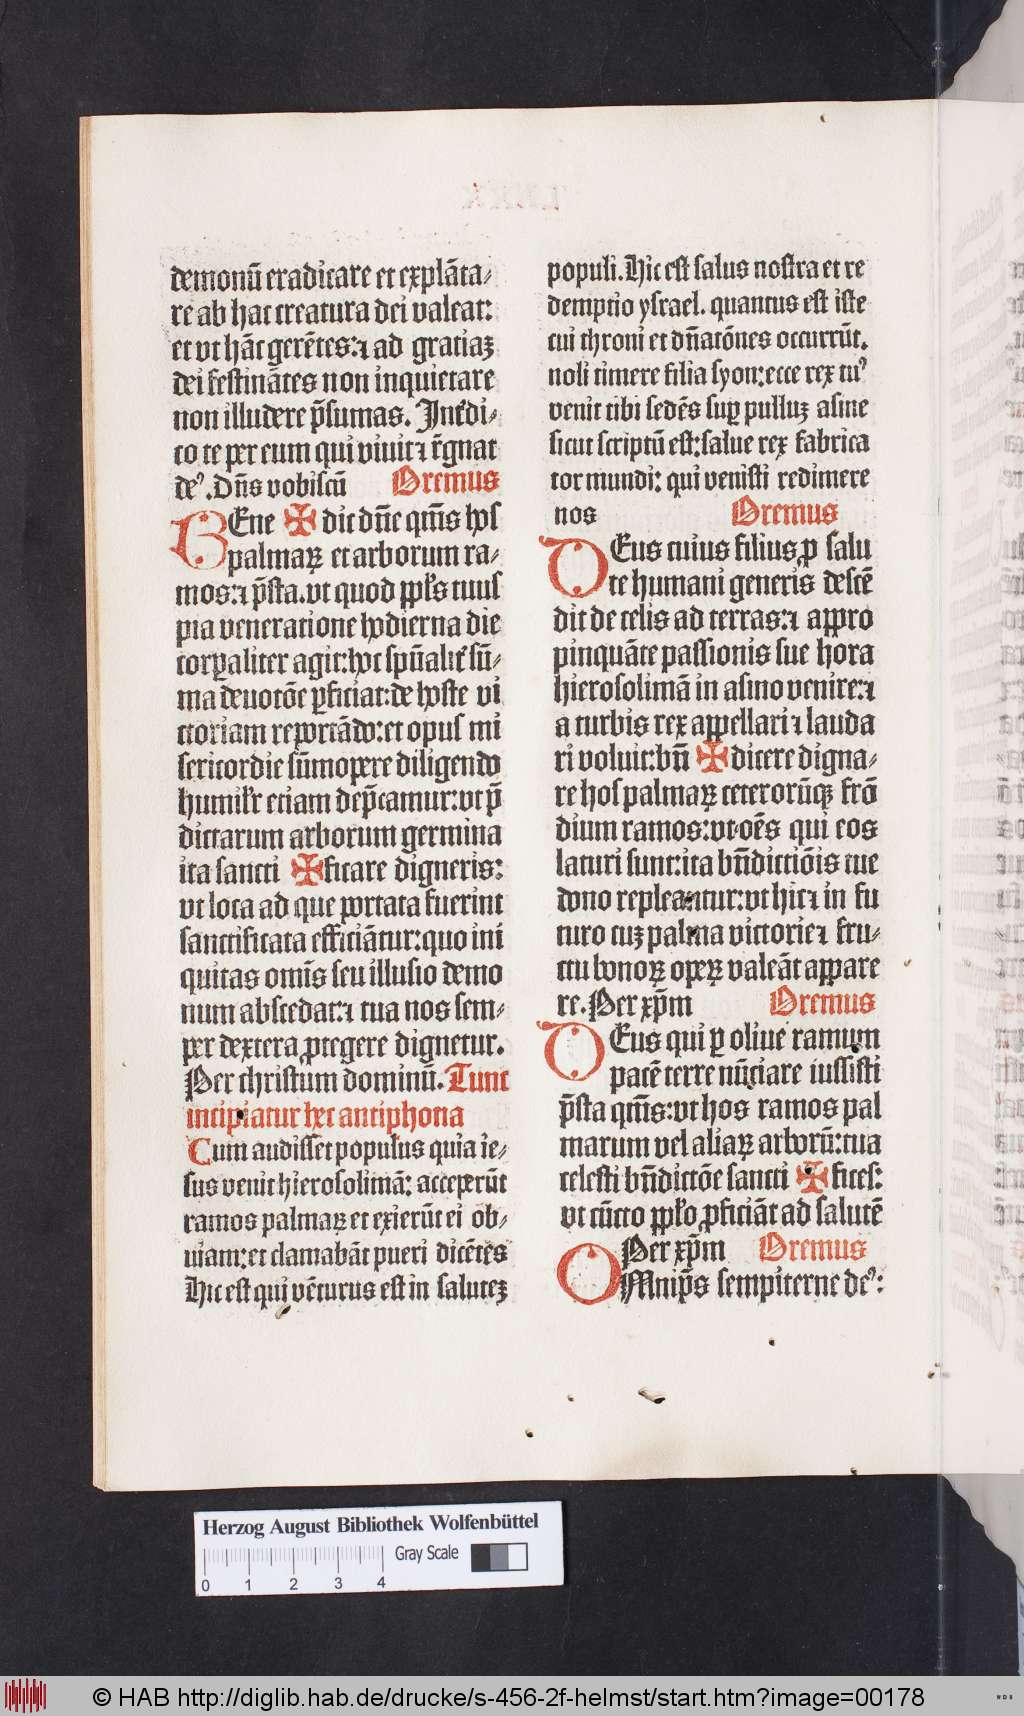 demonũ eradicare et explãta⸗
re ab hac creatura dei valeat:
et vt hãc gerẽtes:⁊ ad gratiaꝫ
dei festinãtes non inquietare
non illudere p̃sumas. Int̃di⸗
co te per eum qui viuit ⁊ r̃gnat
deꝰ. Dñs vobiscũ Oremus
BEne ✠ dic dñe qm̃s hos
palmaꝝ et arborum ra⸗
mos:⁊ p̃sta. vt quod ppl̃s tuus
pia veneratione hodierna die
corꝑaliter agit: hoc spũalit̃ sũ⸗
ma deuotõe ꝑficiat: de hoste vi
ctoriam reportãdo: et opus mi
sericordie sũmopere diligendo
humilr̃ etiam dep̃camur: vt p̃
dictarum arborum germina
ita sancti ✠ ficare digneris:
vt loca ad que portata fuerint
sanctificata efficiãtur: quo ini
quitas omĩs seu illusio demo
num abscedat:⁊ tua nos sem⸗
per dextera ꝓtegere dignetur.
Per christum dominũ. Tunc
incipiatur hec antiphona
Cum audisset populus quia ie⸗
sus venit hierosolimã: acceperũt
ramos palmaꝝ et exierũt ei ob⸗
uiam: et clamabãt pueri dicẽtes
Hic est qui vẽturus est in saluteꝫ
populi. Hic est salus nostra et re
demptio ysrael. quantus est iste
cui throni et dñatõnes occurrũt.
noli timere filia syon: ecce rex tuꝰ
venit tibi sedẽs suꝑ pulluꝫ asine
sicut scriptũ est: salue rex fabrica
tor mundi: qui venisti redimere
nos Oremus
DEus cuius filius ꝓ salu
te humani generis descẽ
dit de celis ad terras:⁊ appro
pinquãte passionis sue hora
hierosolimã in asino venire:⁊
a turbis rex appellari ⁊ lauda
ri voluit: bñ ✠ dicere digna⸗
re hos palmaꝝ ceterorũqꝫ frõ
dium ramos: vt oẽs qui eos
laturi sunt: ita bñdictiõis tue
dono repleantur: vt hic ⁊ in fu
turo cuꝫ palma victorie ⁊ fru⸗
ctu bonoꝝ opeꝝ valeãt appare
re. Per xp̃m Oremus
DEus qui ꝑ oliue ramum
pacẽ terre nũciare iussisti
p̃sta qm̃s: vt hos ramos pal
marum vel aliaꝝ arborũ: tua
celesti bñdictõe sancti ✠ fices:
vt cũcto pplo ꝓficiãt ad salutẽ
Per xp̃m Oremus
OMnip̃s sempiterne deꝰ:
Herzog August Bibliothek Wolfenbüttel
0 1 2 3 4 Gray Scale
© HAB http://diglib.hab.de/drucke/s-456-2f-helmst/start.htm?image=00178